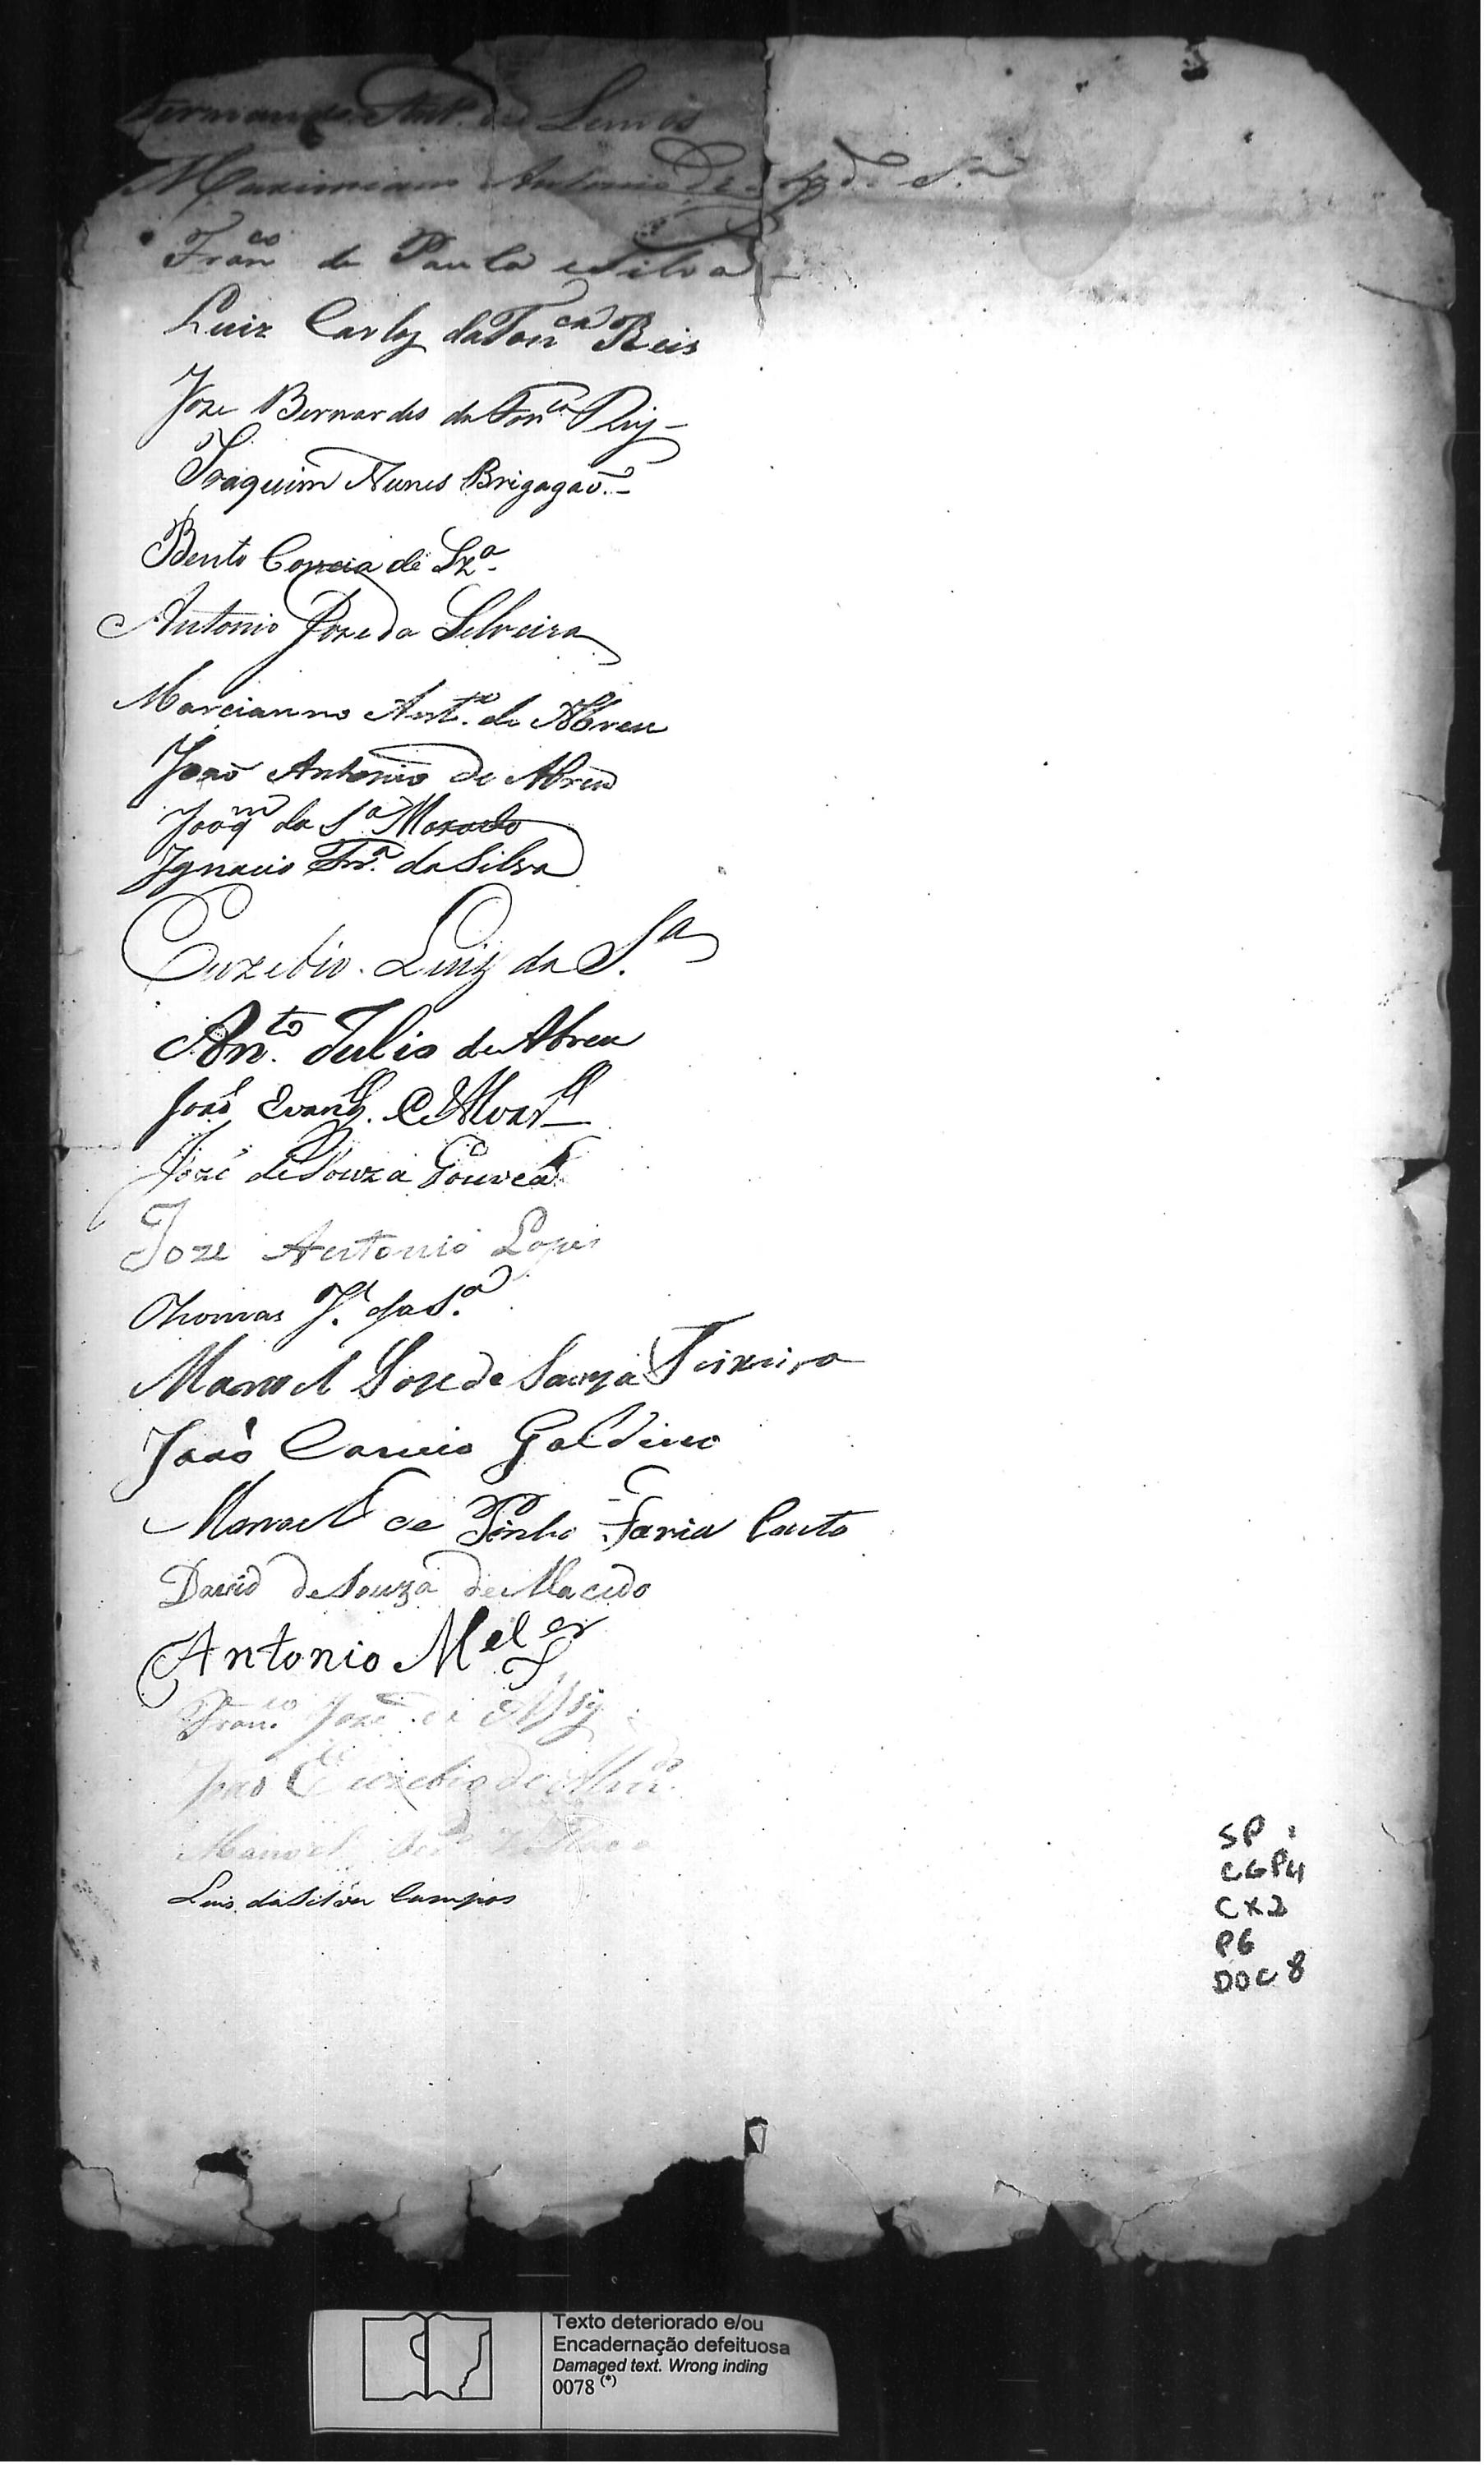 Fernando Ant.o de Lemos
Maximiano Antonio de S.a
Fran.co de Paula e Silva
Luiz Carlos da Fon.ca Reis
Joze Bernardes da Fon.ca Reis
Joaquim Nunes Brigagaõ.
Bento Correia de Sz.a
Antonio Joze da Silveira
Marcianno Ant.o de Abreu
Joaõ Antonio de Abreu
Joaq.m da S.a Macedo
Ignacio Frr.a da Silva
Euzebio Luiz da S.a
An.to Julio de Abreu
Joaõ Evang.
José de Souza Gouvea
Joze Antonio Lopes
Thomas J.e da S.a
Manoel Joze de Souza Teixeira
João Galdino
Manoel de Pinho Faria Couto
David de Souza de Macedo
Antonio Mel
Fran.co Joze de
João Euzebio de
Manoel
Luis da Silva Campos
SP
CGP4
CX2
P6
DOC 8
Texto deteriorado e/ou
Encadernação defeituosa
Damaged text. Wrong inding
0078 (*)